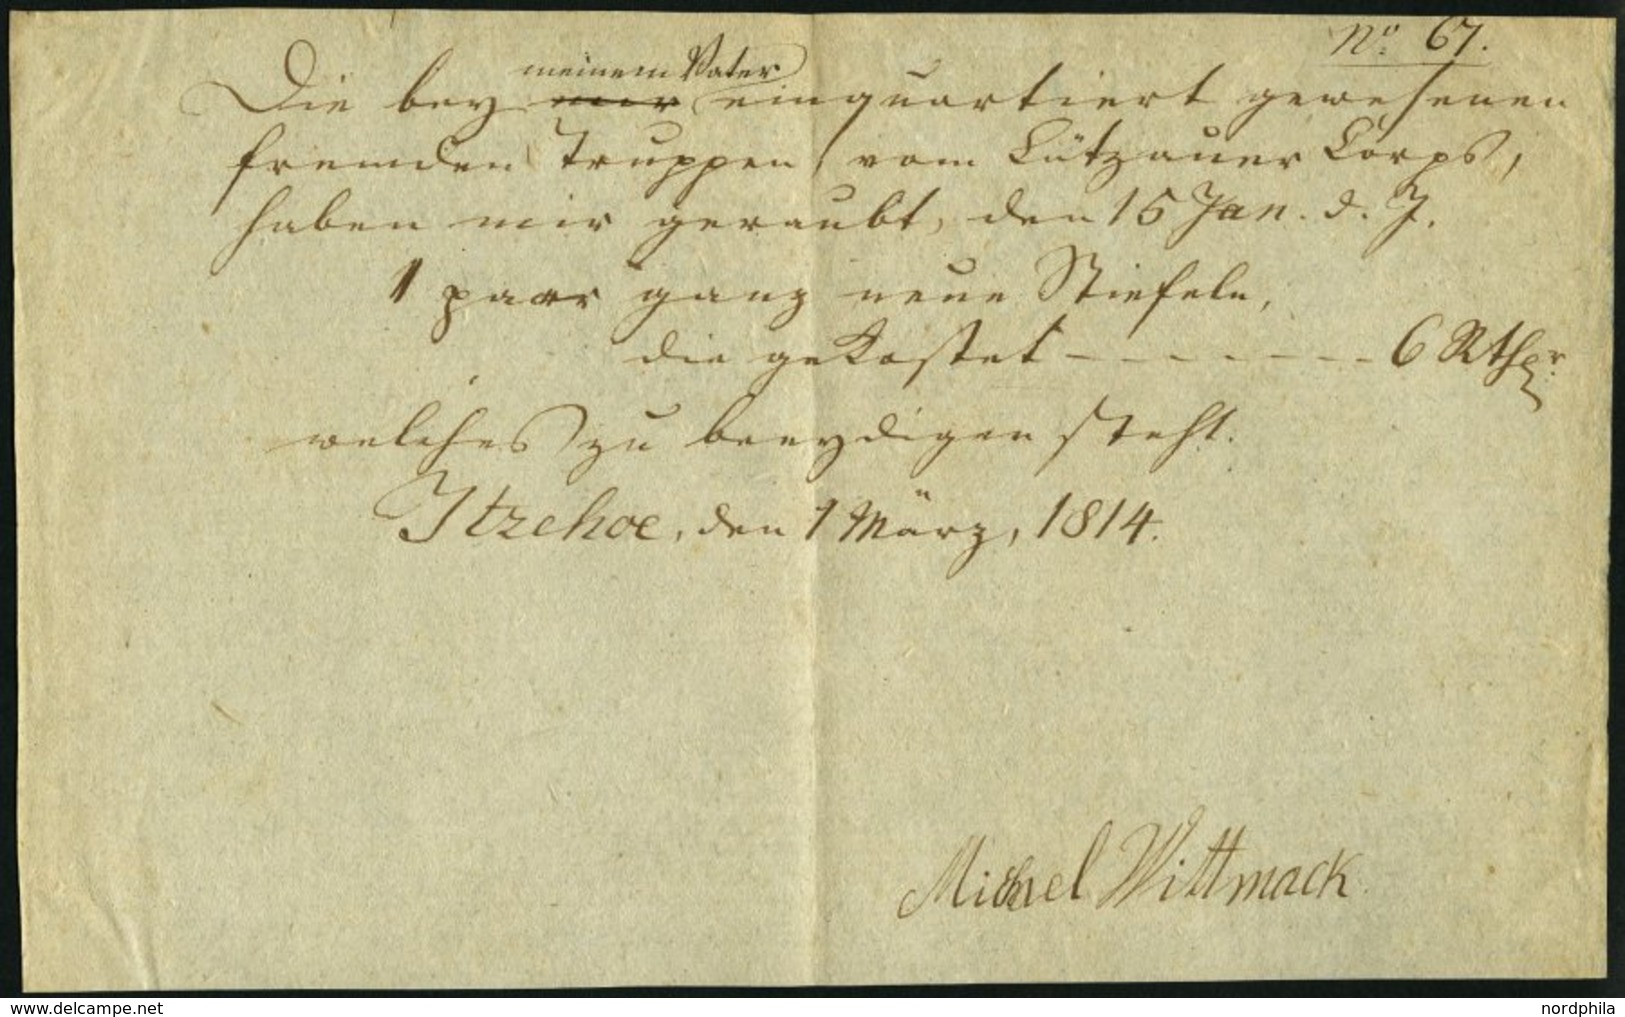 No. 67.
meinem Vater
Die bey mir einquartiert gewesenen
fremden Truppen, vom Lützauer Corps,
haben mir geraubt, den 15 Jan. d. J.
1 paar ganz neue Stiefeln,
die gekostet - - - - - - - 6 Rthlr.
welches zu beeydigen steht.
Itzehoe, den 1 März, 1814.
Michael Wittmack
delcampe.net
nordphila